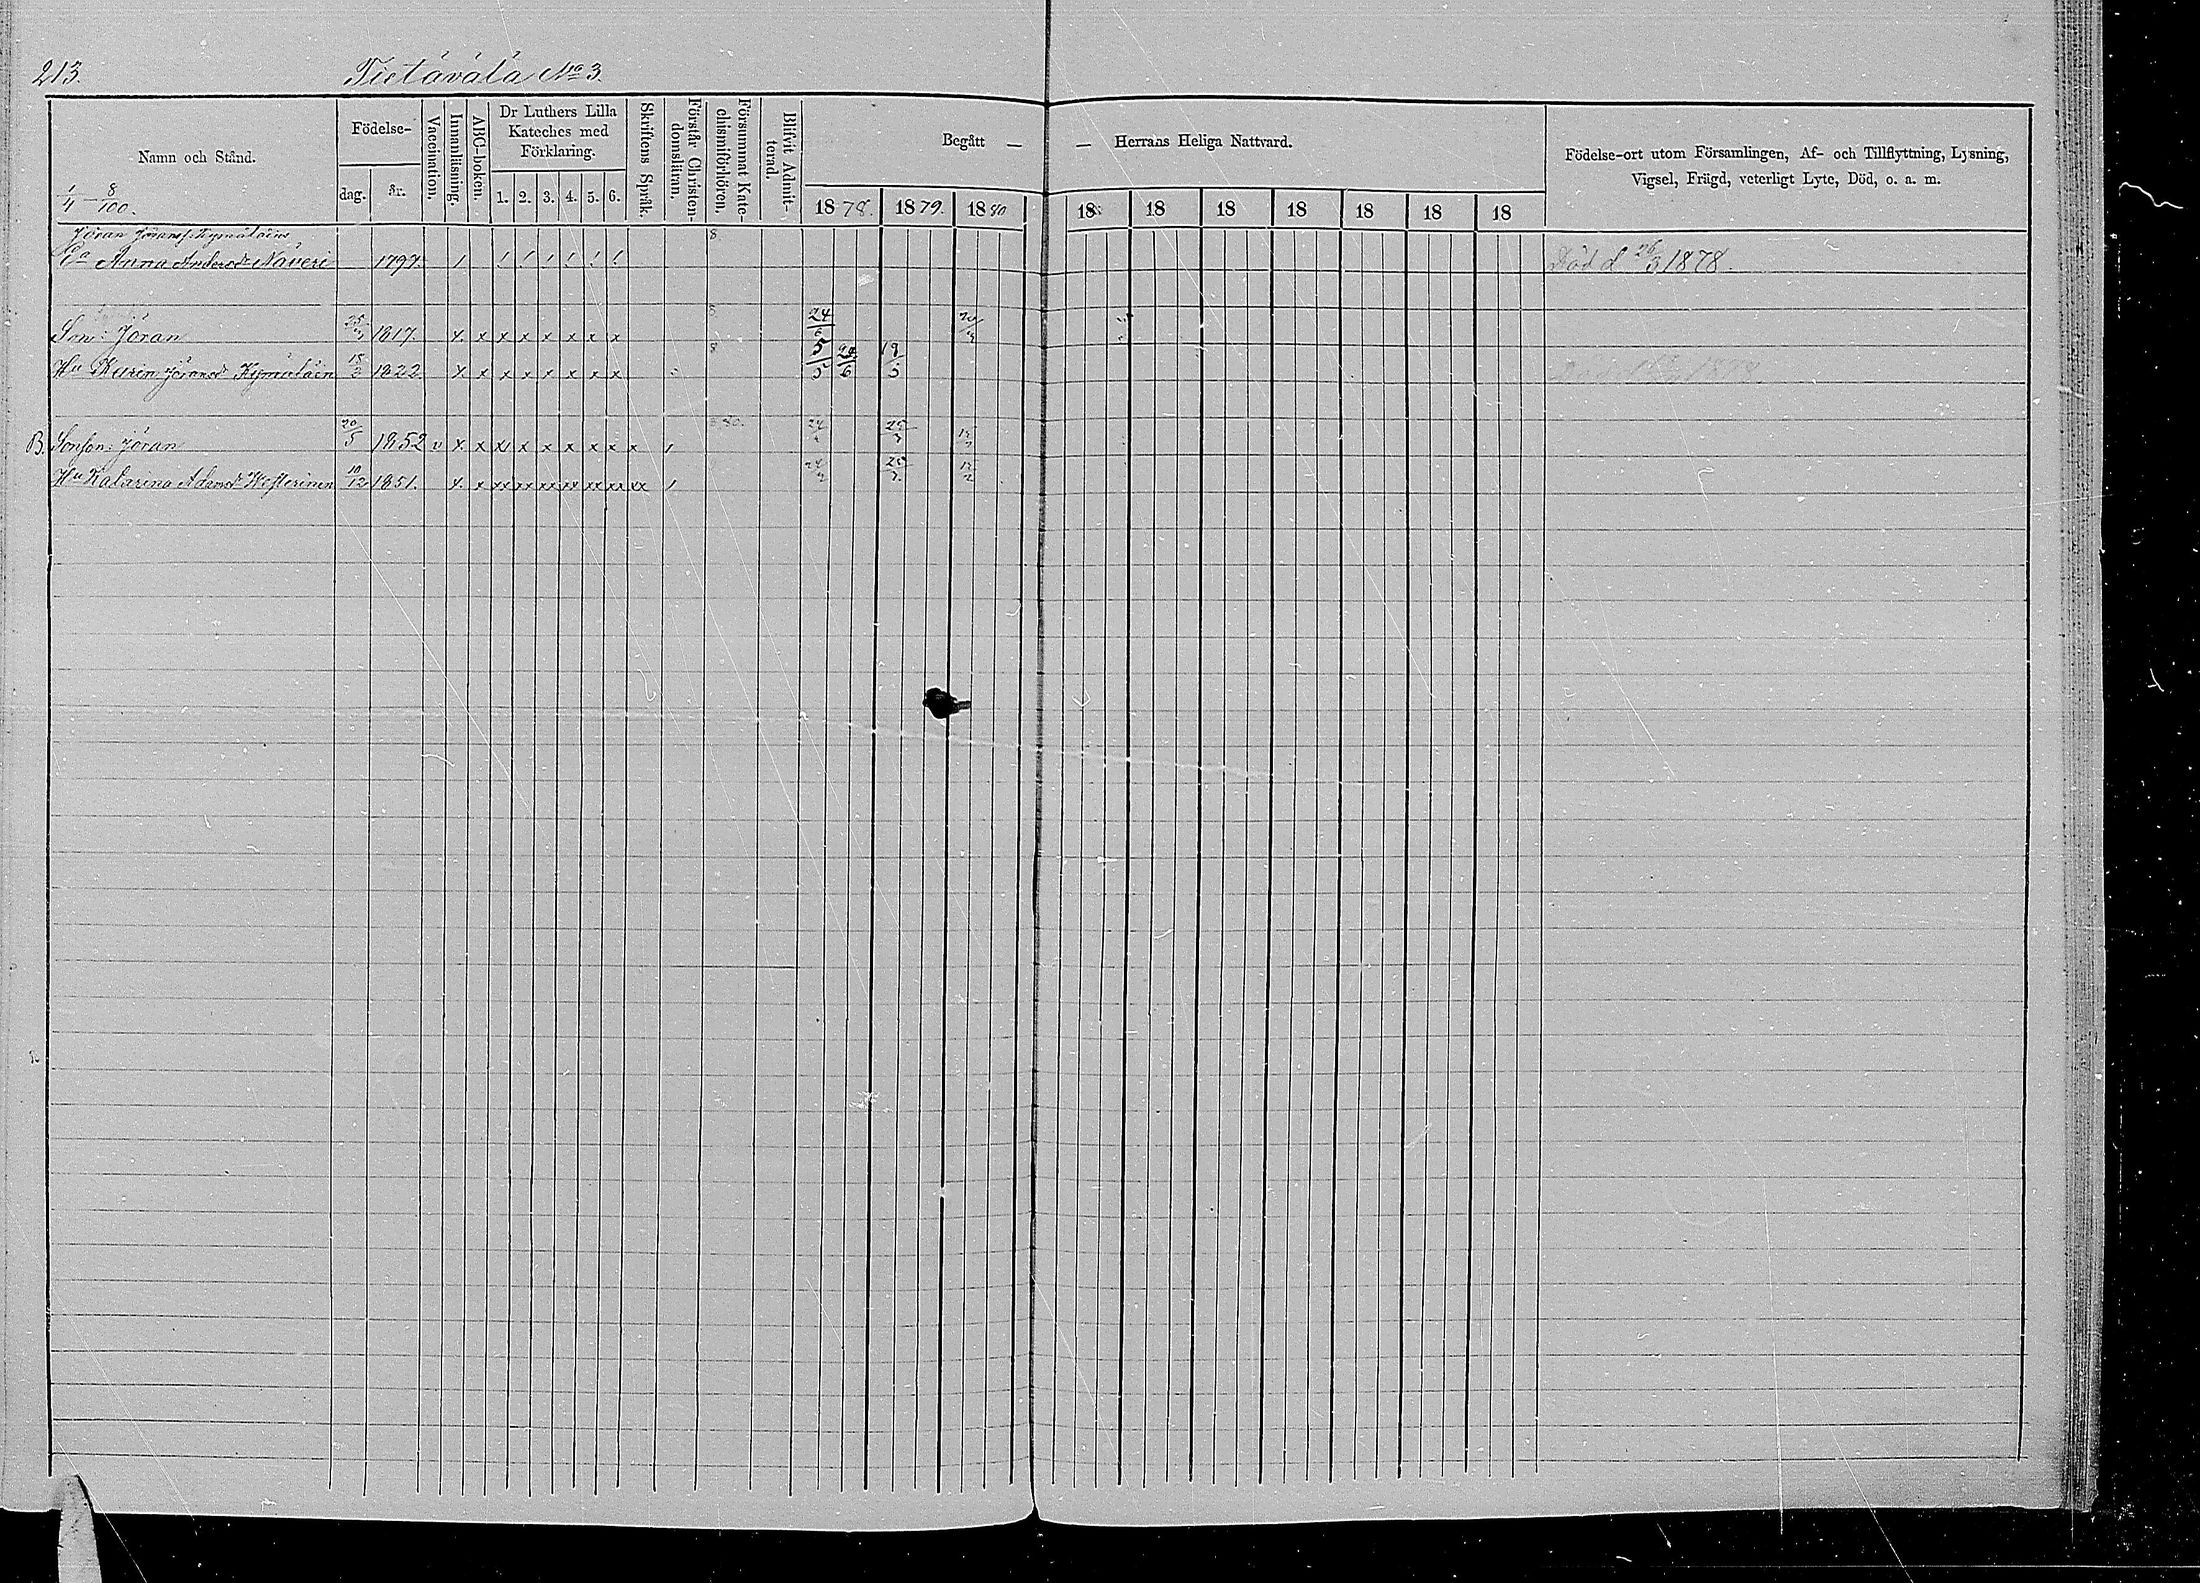 213. Tietävälä No 3.
Namn och Stånd.
Födelse-
dag. år.
Vaccination.
Innanläsning.
ABC-boken.
Dr Luthers Lilla
Kateches med
Förklaring.
1. 2. 3. 4. 5. 6.
Skriftens Språk.
Förstår Christen-
domsläran.
Försummat Kate-
chismiförhören.
Blifvit Admit-
terad.
Begått — — Herrans Heliga Nattvard.
1878. 1879. 1880 18 18 18 18 18 18 18
Födelse-ort utom Församlingen, Af- och Tillflyttning, Lysning,
Vigsel, Frägd, veterligt Lyte, Död, o. a. m.
1/4 — 8/100.
Jöran Jöranss. Kymäläine 8
Anna Andersdr Näveri 1797. Död d 26/3 1878.
Son: Jöran 1817. x x x x x x x x 8 24/6
Hu Karin Jöransdr Kymäläin 18/2 1822 x x x x x x x x 8 5/5 20/6 18/5
B. Sonson: Jöran 20/5 1852 v x x x x x x x x x
Hu Katarina Adamsdr Westerinen 10/12 1851. x x xx xx xx xx xx xx xx